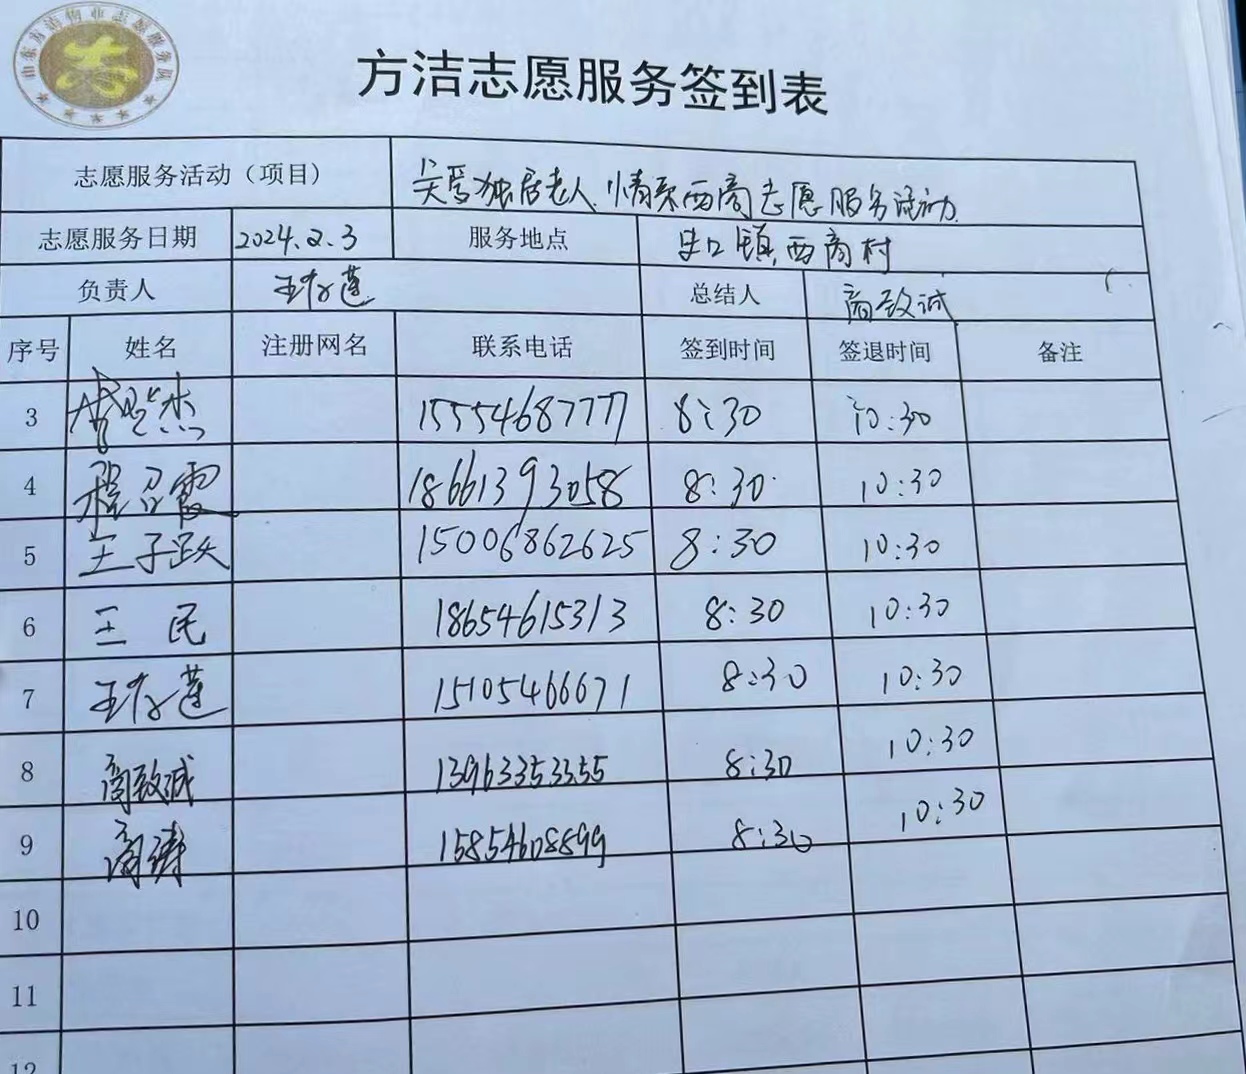 方洁志愿服务签到表
志愿服务活动（项目） 关爱独居老人.情系西商志愿服务活动.
志愿服务日期 2024.2.3 服务地点 史口镇西商村
负责人 王 莲 总结人 商致诚
序号 姓名 注册网名 联系电话 签到时间 签退时间 备注
3 杰 15554687777 8:30 10:30
4 程召霞 18661393058 8:30 10:30
5 王子跃 15006862625 8:30 10:30
6 王民 18654615313 8:30 10:30
7 王 莲 15105466671 8:30 10:30
8 商致诚 13963353355 8:30 10:30
9 商涛 15854608899 8:30 10:30
10
11
12